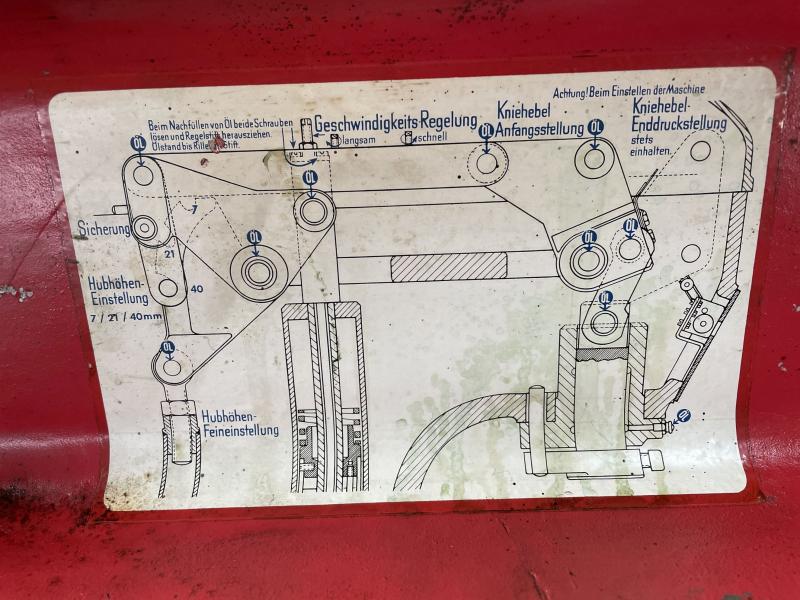 Achtung! Beim Einstellen der Maschine
Kniehebel-
Enddruckstellung
stets
einhalten.
Kniehebel
Anfangsstellung
Geschwindigkeits-Regelung
langsam
schnell
Beim Nachfüllen von Öl beide Schrauben
lösen und Regelstift herausziehen.
Ölstand bis Rille
ÖL
ÖL
ÖL
ÖL
ÖL
ÖL
ÖL
ÖL
ÖL
ÖL
Sicherung
7
21
40
Hubhöhen-
Einstellung
7 / 21 / 40 mm
Hubhöhen-
Feineinstellung